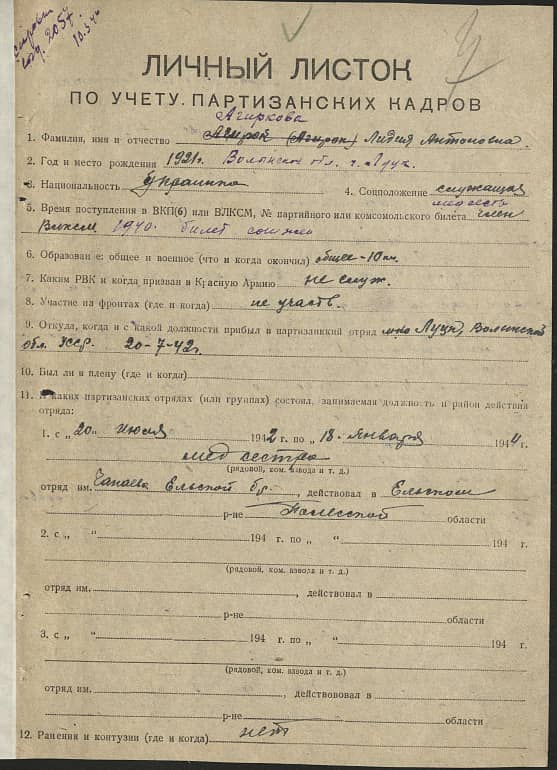 Справка
10.3.4
ЛИЧНЫЙ ЛИСТОК
ПО УЧЕТУ ПАРТИЗАНСКИХ КАДРОВ
Агиркова
1. Фамилия, имя и отчество Лидия Антоновна.
2. Год и место рождения 1921г. Волынская обл. г. Луцк.
3. Национальность украинка 4. Соцположение служащая
медсестр
5. Время поступления в ВКП(б) или ВЛКСМ, № партийного или комсомольского билета член
ВЛКСМ 1940. билет сожжен
6. Образование: общее и военное (что и когда окончил) общее - 10 кл.
7. Каким РВК и когда призван в Красную Армию не служ.
8. Участие на фронтах (где и когда) не участв.
9. Откуда, когда и с какой должности прибыл в партизанский отряд Луцк, Волынской
обл. УССР. 20-7-42г.
10. Был ли в плену (где и когда)
11. В каких партизанских отрядах (или группах) состоял, занимаемая должность и район действия
отряда:
1. с „20" июля 1942 г. по „18" января 1944 г.
мед сестра
(рядовой, ком. взвода и т. д.)
отряд им. Чапаева Ельской бр., действовал в Ельском
р-не Полесской области
2. с „ " 194 г. по „ " 194 г.
(рядовой, ком. взвода и т. д.)
отряд им. , действовал в
р-не области
3. с „ " 194 г. по „ " 194 г.
(рядовой, ком. взвода и т. д.)
отряд им. , действововал в
р-не области
12. Ранения и контузии (где и когда) нет